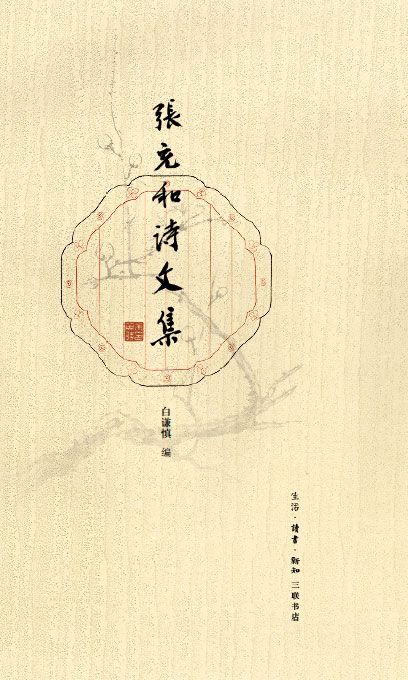 張充和诗文集
白谦慎 编
生活·讀書·新知 三联书店